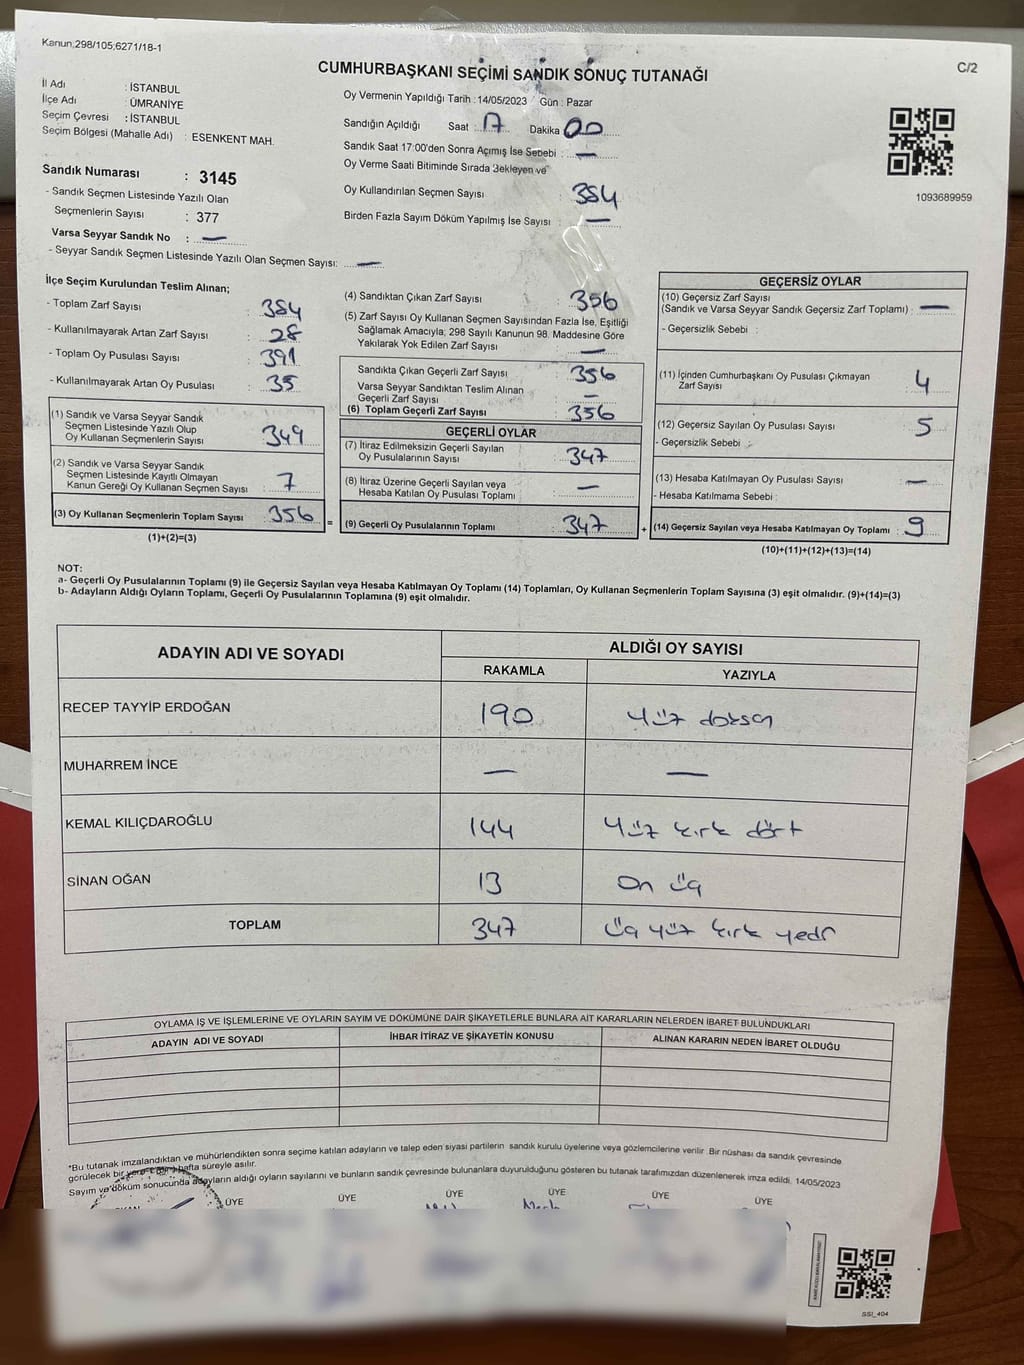 Kanun;298/105,6271/18-1
C/2
CUMHURBAŞKANI SEÇİMİ SANDIK SONUÇ TUTANAĞI
İl Adı : İSTANBUL
İlçe Adı : ÜMRANİYE
Seçim Çevresi : İSTANBUL
Seçim Bölgesi (Mahalle Adı) : ESENKENT MAH.
Sandık Numarası : 3145
- Sandık Seçmen Listesinde Yazılı Olan
Seçmenlerin Sayısı : 377
Varsa Seyyar Sandık No : —
- Seyyar Sandık Seçmen Listesinde Yazılı Olan Seçmen Sayısı: —
Oy Vermenin Yapıldığı Tarih : 14/05/2023 Gün : Pazar
Sandığın Açıldığı Saat : 17 Dakika : 00
Sandık Saat 17:00'den Sonra Açımış İse Sebebi : —
Oy Verme Saati Bitiminde Sırada Bekleyen ve
Oy Kullandırılan Seçmen Sayısı : 384
Birden Fazla Sayım Döküm Yapılmış İse Sayısı : —
1093689959
İlçe Seçim Kurulundan Teslim Alınan;
- Toplam Zarf Sayısı : 384
- Kullanılmayarak Artan Zarf Sayısı : 28
- Toplam Oy Pusulası Sayısı : 391
- Kullanılmayarak Artan Oy Pusulası : 35
(1) Sandık ve Varsa Seyyar Sandık
Seçmen Listesinde Yazılı Olup
Oy Kullanan Seçmenlerin Sayısı : 349
(2) Sandık ve Varsa Seyyar Sandık
Seçmen Listesinde Kayıtlı Olmayan
Kanun Gereği Oy Kullanan Seçmen Sayısı : 7
(3) Oy Kullanan Seçmenlerin Toplam Sayısı : 356 =
(1)+(2)=(3)
(4) Sandıktan Çıkan Zarf Sayısı : 356
(5) Zarf Sayısı Oy Kullanan Seçmen Sayısından Fazla İse, Eşitliği
Sağlamak Amacıyla; 298 Sayılı Kanunun 98. Maddesine Göre
Yakılarak Yok Edilen Zarf Sayısı : —
Sandıkta Çıkan Geçerli Zarf Sayısı : 356
Varsa Seyyar Sandıktan Teslim Alınan
Geçerli Zarf Sayısı : —
(6) Toplam Geçerli Zarf Sayısı : 356
GEÇERLİ OYLAR
(7) İtiraz Edilmeksizin Geçerli Sayılan
Oy Pusulalarının Sayısı : 347
(8) İtiraz Üzerine Geçerli Sayılan veya
Hesaba Katılan Oy Pusulası Toplamı : —
(9) Geçerli Oy Pusulalarının Toplamı : 347 +
GEÇERSİZ OYLAR
(10) Geçersiz Zarf Sayısı
(Sandık ve Varsa Seyyar Sandık Geçersiz Zarf Toplamı) : —
- Geçersizlik Sebebi :
(11) İçinden Cumhurbaşkanı Oy Pusulası Çıkmayan
Zarf Sayısı : 4
(12) Geçersiz Sayılan Oy Pusulası Sayısı : 5
- Geçersizlik Sebebi :
(13) Hesaba Katılmayan Oy Pusulası Sayısı : —
- Hesaba Katılmama Sebebi :
(14) Geçersiz Sayılan veya Hesaba Katılmayan Oy Toplamı : 9
(10)+(11)+(12)+(13)=(14)
NOT:
a- Geçerli Oy Pusulalarının Toplamı (9) ile Geçersiz Sayılan veya Hesaba Katılmayan Oy Toplamı (14) Toplamları, Oy Kullanan Seçmenlerin Toplam Sayısına (3) eşit olmalıdır. (9)+(14)=(3)
b- Adayların Aldığı Oyların Toplamı, Geçerli Oy Pusulalarının Toplamına (9) eşit olmalıdır.
ADAYIN ADI VE SOYADI
ALDIĞI OY SAYISI
RAKAMLA YAZIYLA
RECEP TAYYİP ERDOĞAN 190 yüz doksan
MUHARREM İNCE — —
KEMAL KILIÇDAROĞLU 144 yüz kırk dört
SİNAN OĞAN 13 on üç
TOPLAM 347 üç yüz kırk yedi
OYLAMA İŞ VE İŞLEMLERİNE VE OYLARIN SAYIM VE DÖKÜMÜNE DAİR ŞİKAYETLERLE BUNLARA AİT KARARLARIN NELERDEN İBARET BULUNDUKLARI
ADAYIN ADI VE SOYADI İHBAR İTİRAZ VE ŞİKAYETİN KONUSU ALINAN KARARIN NEDEN İBARET OLDUĞU
*Bu tutanak imzalandıktan ve mühürlendikten sonra seçime katılan adayların ve talep eden siyasi partilerin sandık kurulu üyelerine veya gözlemcilerine verilir. Bir nüshası da sandık çevresinde
görülecek bir yere bir hafta süreyle asılır.
Sayım ve döküm sonucunda adayların aldığı oyların sayılarını ve bunların sandık çevresinde bulunanlara duyurulduğunu gösteren bu tutanak tarafımızdan düzenlenerek imza edildi. 14/05/2023
ÜYE ÜYE ÜYE ÜYE ÜYE ÜYE
SSI_404